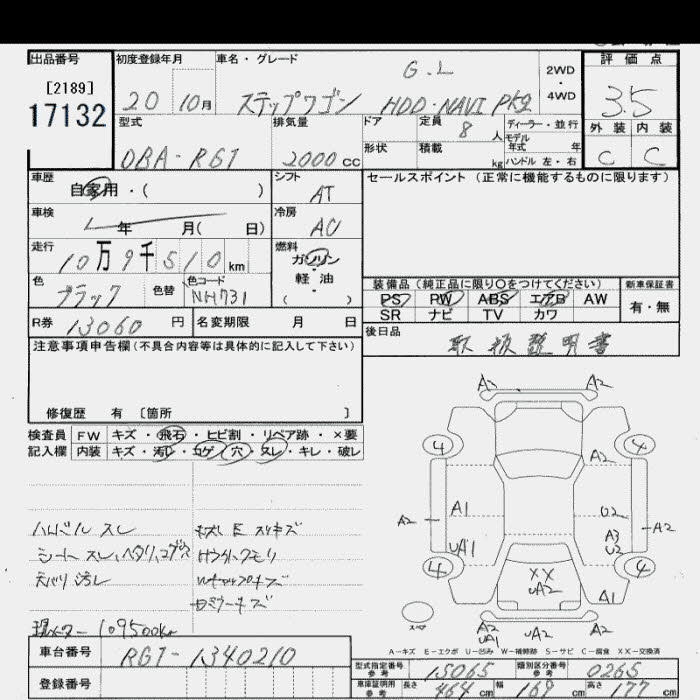 出品番号 初度登録年月 車名・グレード 評価点
[2189] G.L 2WD
17132 20 10月 ステップワゴン HDD・NAVI PKG ・ 4WD 3.5
型式 排気量 ドア 定員 8人 ディーラー・並行 外装 内装
モデル年式 年
DBA-RG1 2000cc 形状 積載 kg ハンドル 左・右 C C
車歴 自家用・( ) シフト AT セールスポイント (正常に機能するものに限ります)
車検 年 月( 日) 冷房 AC
走行 10万9千510km 燃料 ガソリン・軽油 ( )
色 ブラック 色替 色コード NH731
装備品(純正品に限り○をつけてください) 新車保証書
PS PW ABS エアB AW 有・無
SR ナビ TV カワ
R券 13060円 名変期限 月 日
後日品 取扱説明書
注意事項申告欄(不具合内容等は具体的に記入して下さい)
修復歴 有 [箇所 ]
検査員 FW キズ・飛石・ヒビ割・リペア跡・×要
記入欄 内装 キズ・汚レ・コゲ・穴・スレ・キレ・破レ
ハンドル スレ
シート スレ、ヘタリ、コゲ穴
天バリ 汚レ
現メーター 109500km
A2 A2
4 4
A2
A1 U2
A2 A2
UA1 A3
U2
4 4
XX
UA2 A1
スペア
A2 A2 A2
UA1
A-キズ E-エクボ U-凹み W-補修跡 S-サビ C-腐食 XX-交換済
車台番号 RG1-1340210
型式指定番号 参考 15065 類別区分番号 参考 0265
登録番号
車庫証明用 参考 長さ 464cm 幅 169cm 高さ 177cm